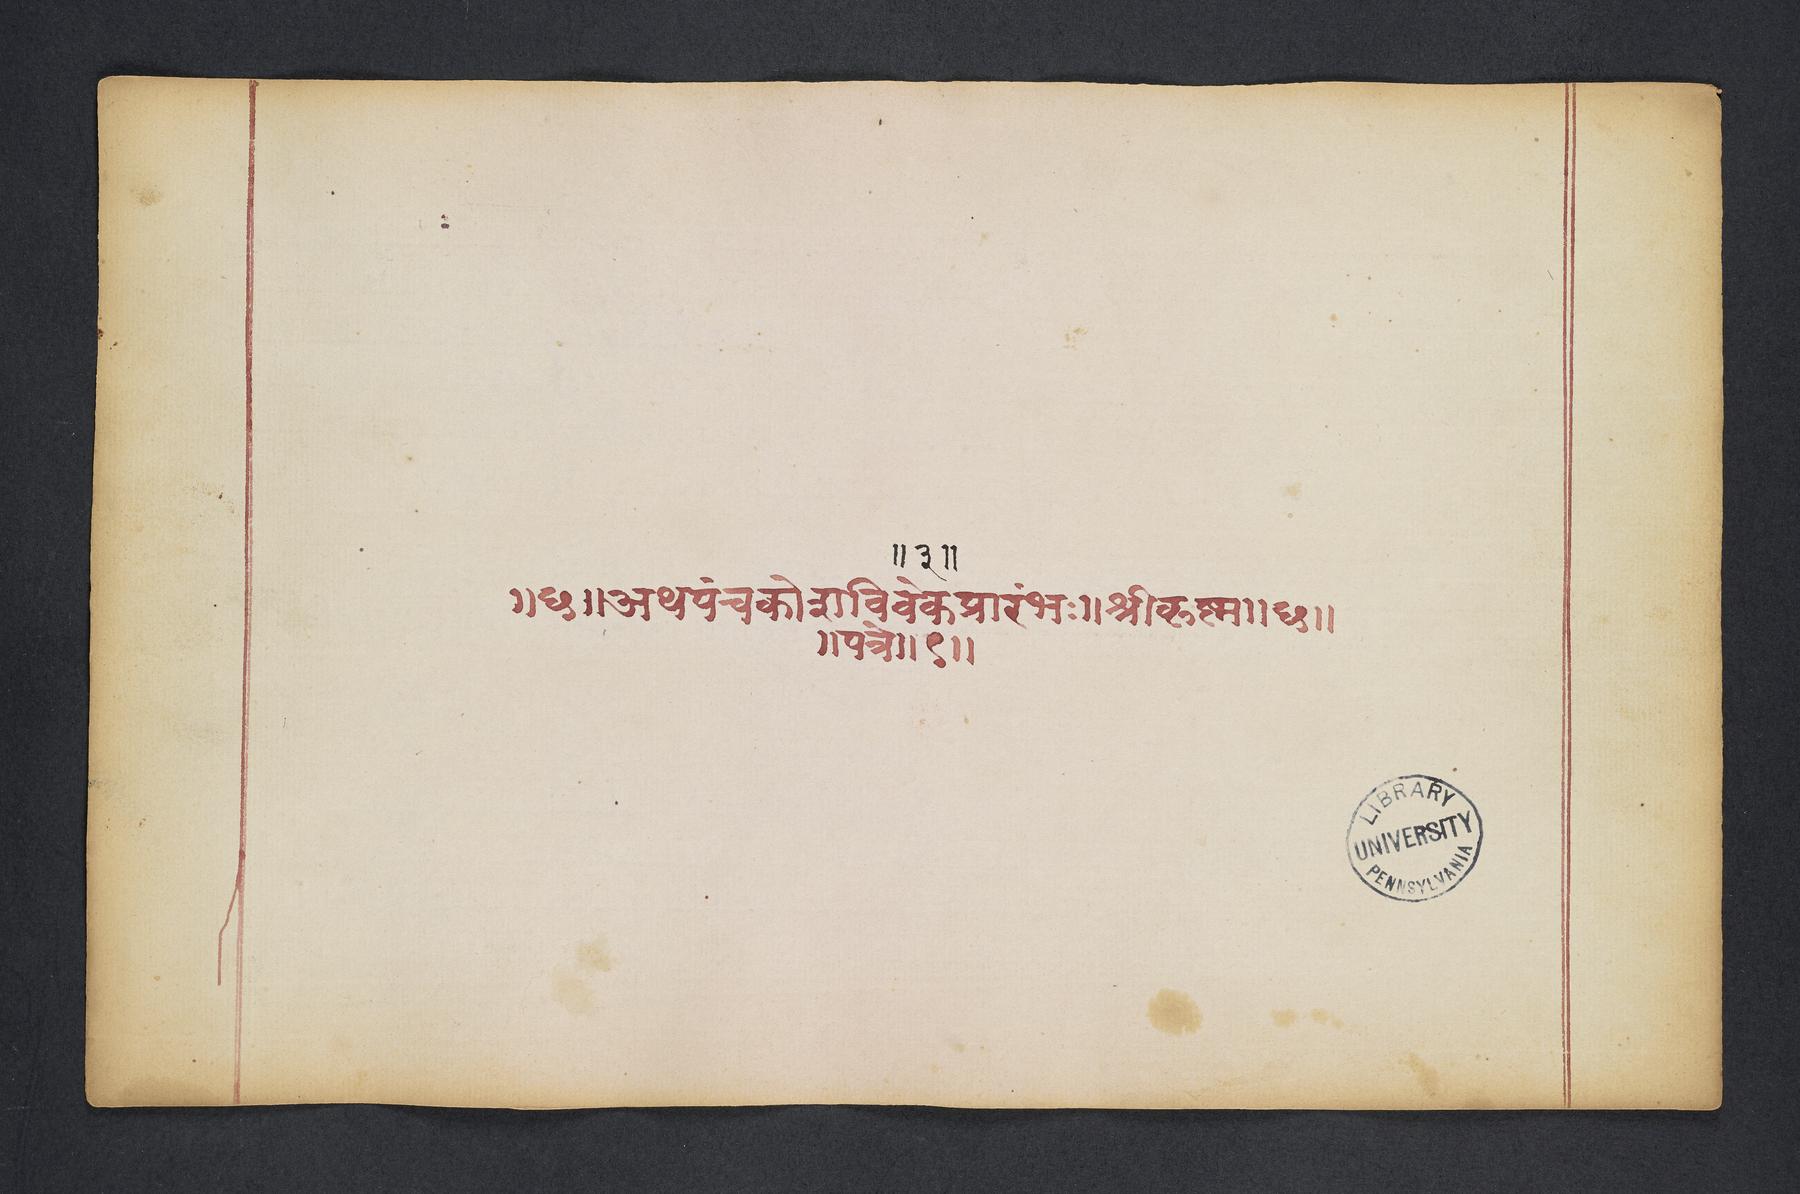 ॥३॥
॥छ॥अथपंचकोशविवेकप्रारंभः॥श्रीकृष्ण॥छ॥
॥पत्रे॥९॥
LIBRARY
UNIVERSITY
PENNSYLVANIA